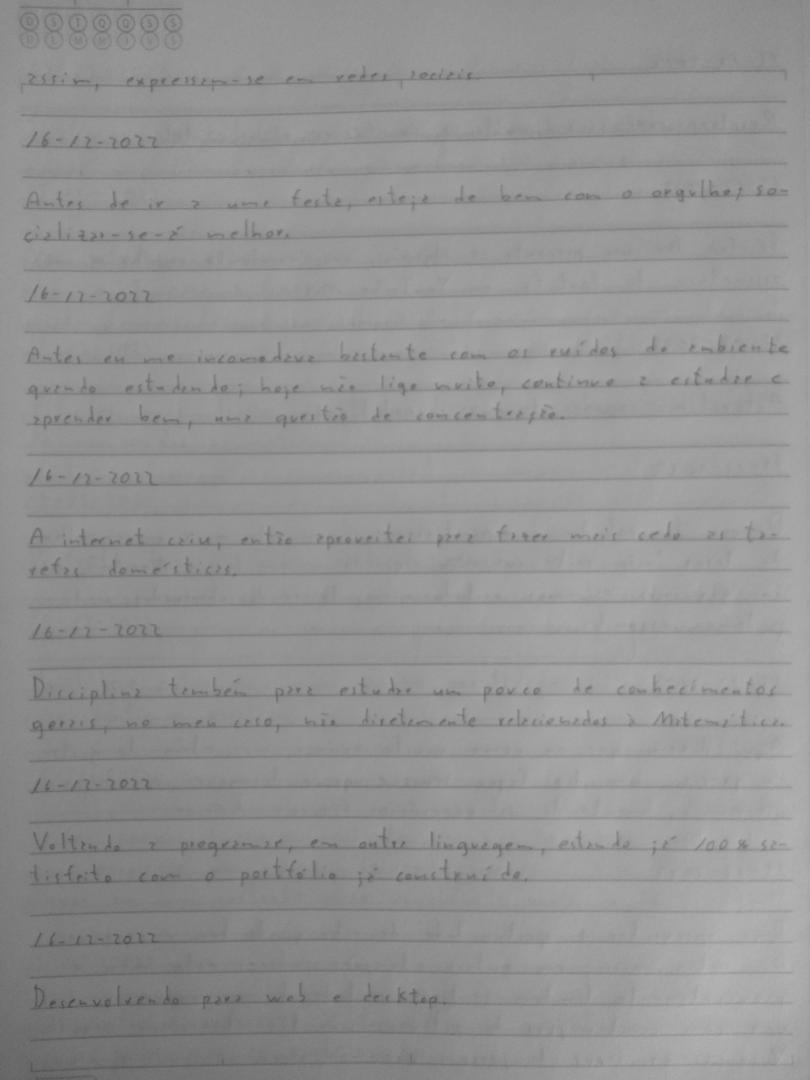 D S T Q Q S S
D L M M J V S
assim, expressem-se em redes sociais.
16-12-2022
Antes de ir a uma festa, esteja de bem com o orgulho; so-
cializar-se-á melhor.
16-12-2022
Antes eu me incomodava bastante com os ruídos do ambiente
quando estudando; hoje não ligo muito, continuo a estudar e
aprender bem, uma questão de concentração.
16-12-2022
A internet caiu, então aproveitei para fazer mais cedo as ta-
refas domésticas.
16-12-2022
Disciplina também para estudar um pouco de conhecimentos
gerais, no meu caso, não diretamente relacionados à Matemática.
16-12-2022
Voltando a programar, em outra linguagem, estando já 100% sa-
tisfeito com o portfólio já construído.
16-12-2022
Desenvolvendo para web e desktop.